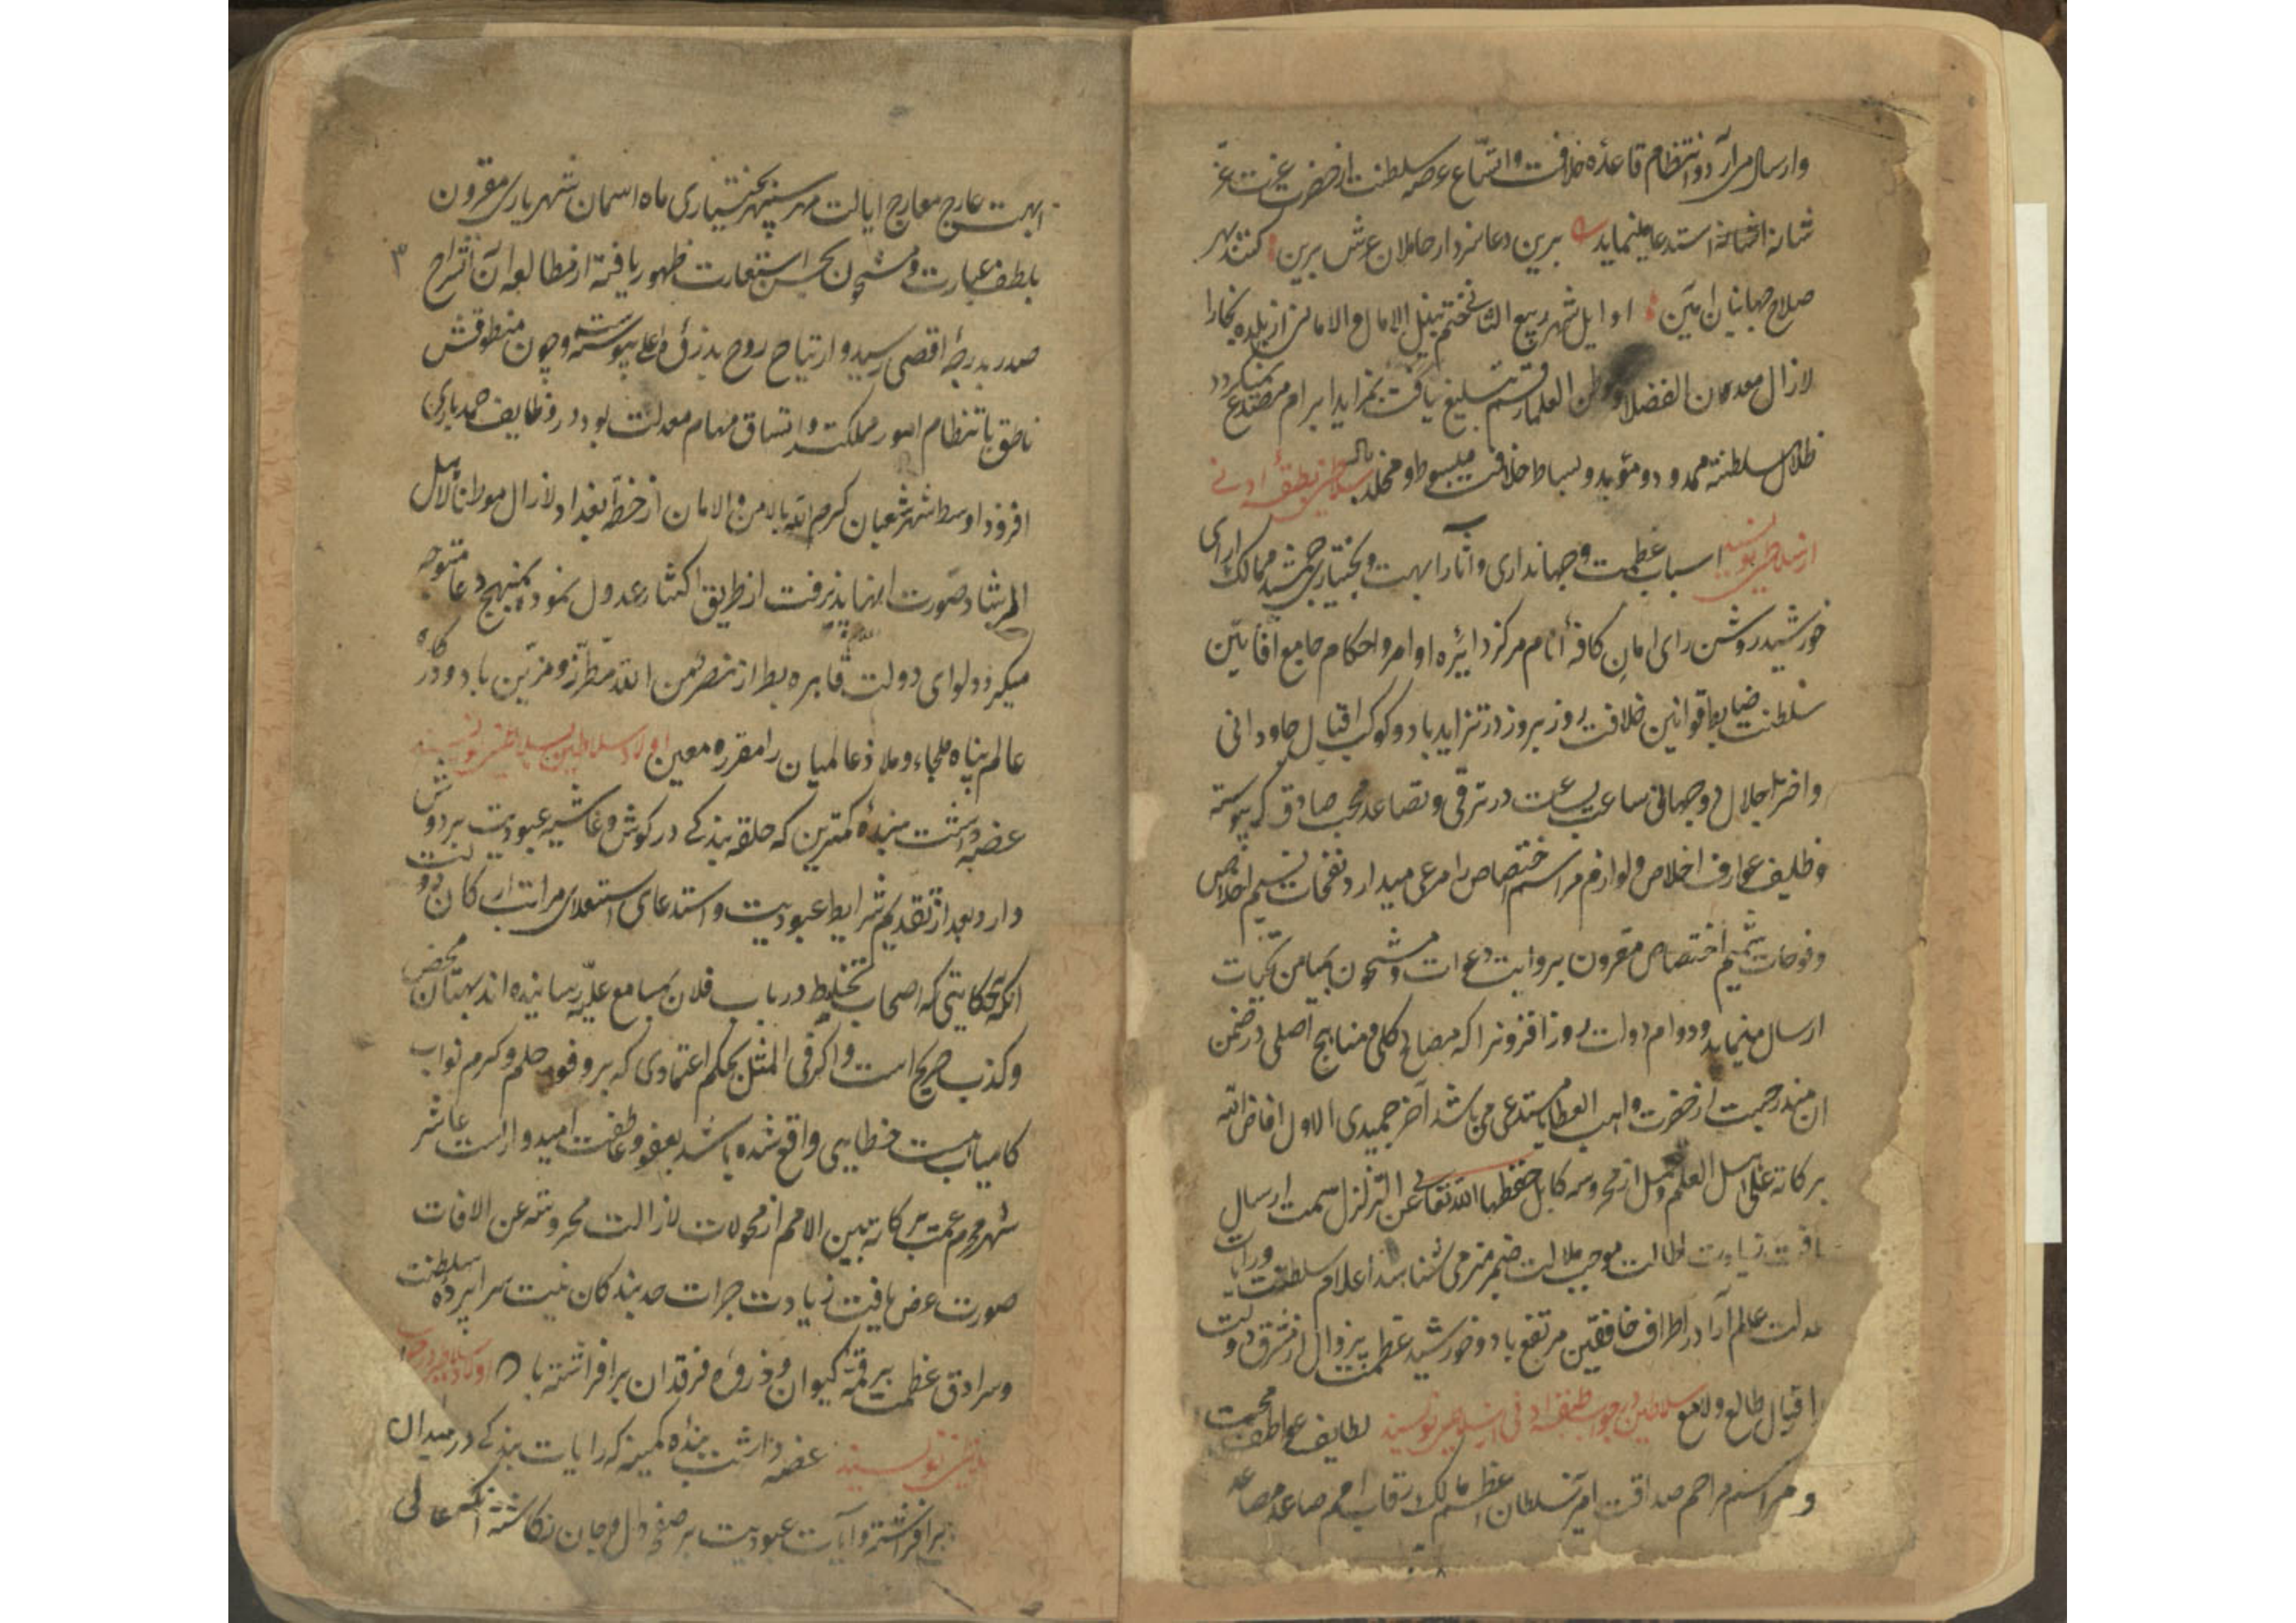 وارسال مرادو انتظام قاعده خلافت و اتساع عرصه سلطنت از حضرت عزت عز
شانه استدعا مینماید برین دعا سزدار حاملان عرش برین کنند بهر
صلاح جهانیان آمین اوایل شهر ربیع الثانی ختم بنیل الامال و الامانی از بلده بخارا
لازال معدن الفضلا و العلما رقم تبلیغ یافت بمزاید ابرام مصدع نمیکردد
ظلال سلطنته ممدود و مؤید و بساط خلافت مبسوط و مخلد باد سلاطین طبقه ادنی
از سلاطین نویسند اسباب عظمت و جهانداری و آثار ابهت و بختیاری جمشید ممالک ارای
خورشید روشن رای امان کافه انام مرکز دایره اوامر و احکام جامع
سلطنت ضابط قوانین خلافت روز بروز در تزاید باد و کوکب اقبال جاودانی
واختر اجلال دوجهانی ساعت بساعت در ترقی و تصاعد محب صادق که پیوسته
وظایف عوارف اخلاص و لوازم مراسم اختصاص را مرعی میدارد نفحات نسیم اخلاص
وفوحات شمیم اختصاص مقرون بروایت دعوات و مشحون بمیامن تحیات
ارسال مینماید و دوام دولت روز افزونرا که مصالح کلی و مناهج اصلی در ضمن
ان مندرجست از حضرت واهب العطایا مستدعی می باشد آخر جمیدی الاول افاض الله
برکاته علی اهل العلم و العمل از محروسه کابل حفظها الله تعالی عن التزلزل سمت ارسال
یافت زیادت اطالت موجب ملالت ضمیر منیر می شناسد اعلام سلطنت و رایات
عدلت عالم آرا در اطراف خافقین مرتفع باد و خورشید عظمت بیزوال از مشرق دولت
اقبال طالع و لامع سلاطین در جواب طبقه ادنی از سلاطین نویسند لطایف عواطف محبت
و مراسم مراحم صداقت امیر سلطان اعظم مالک رقاب امم صاعد مصاعد
ابهت عارج معارج ایالت مهر سپهر بختیاری ماه اسمان شهریاری مقرون
بلطف عبارت و مشحون بحسن استعارت ظهور یافته از مطالعه آن انشراح
صدر بدرجه اقصی رسید و ارتیاح روح بذروه اعلی پیوست و چون منطوقش
ناطق بانتظام امور مملکت و اتساق مهام معدلت بود در وظایف حمد باری
افزود اوسط شهر شعبان کرم الله بالامن و الامان از خطه بغداد لازال موطنا لاهل
الرشاد صورت انها پذیرفت از طریق اکثار عدول نموده بمنهج دعا متوجه
میکردد لوای دولت قاهره بطراز نصر من الله مطرز و مزین باد و درکاه
عالم پناه ملجاء و ملاذ عالمیان را مقر و معین اولاد سلاطین بسلاطین نویسند
عرضه داشت بنده کمترین که حلقه بندکی در کوش و غاشیه عبودیت بر دوش
دارد بعد از تقدیم شرایط عبودیت و استدعای استعلای مراتب ارکان دولت
انکه حکایتی که اصحاب تخلیط در باب فلان بمسامع علیه رسانیده اند بهتان محض
و کذب صریح است و اکر فی المثل بحکم اعتمادی که بر وفور حلم و کرم نواب
کامیاب هست خطایی واقع شده باشد بعفو و عاطفت امیدوارست عاشر
شهر محرم عمت برکاته بین الامم از محولات لازالت محروسة عن الافات
صورت عرض یافت زیادت جرات حد بندکان نیست سرابرده سلطنت
وسرادق عظمت بر قمه کیوان و ذروه فرقدان برافراشته باد
نویسند عرضه داشت بنده کمینه که رایات بندکی در میدان
برافراشته و آیات عبودیت بر صفحه دل و جان نکاشته انکه عالی